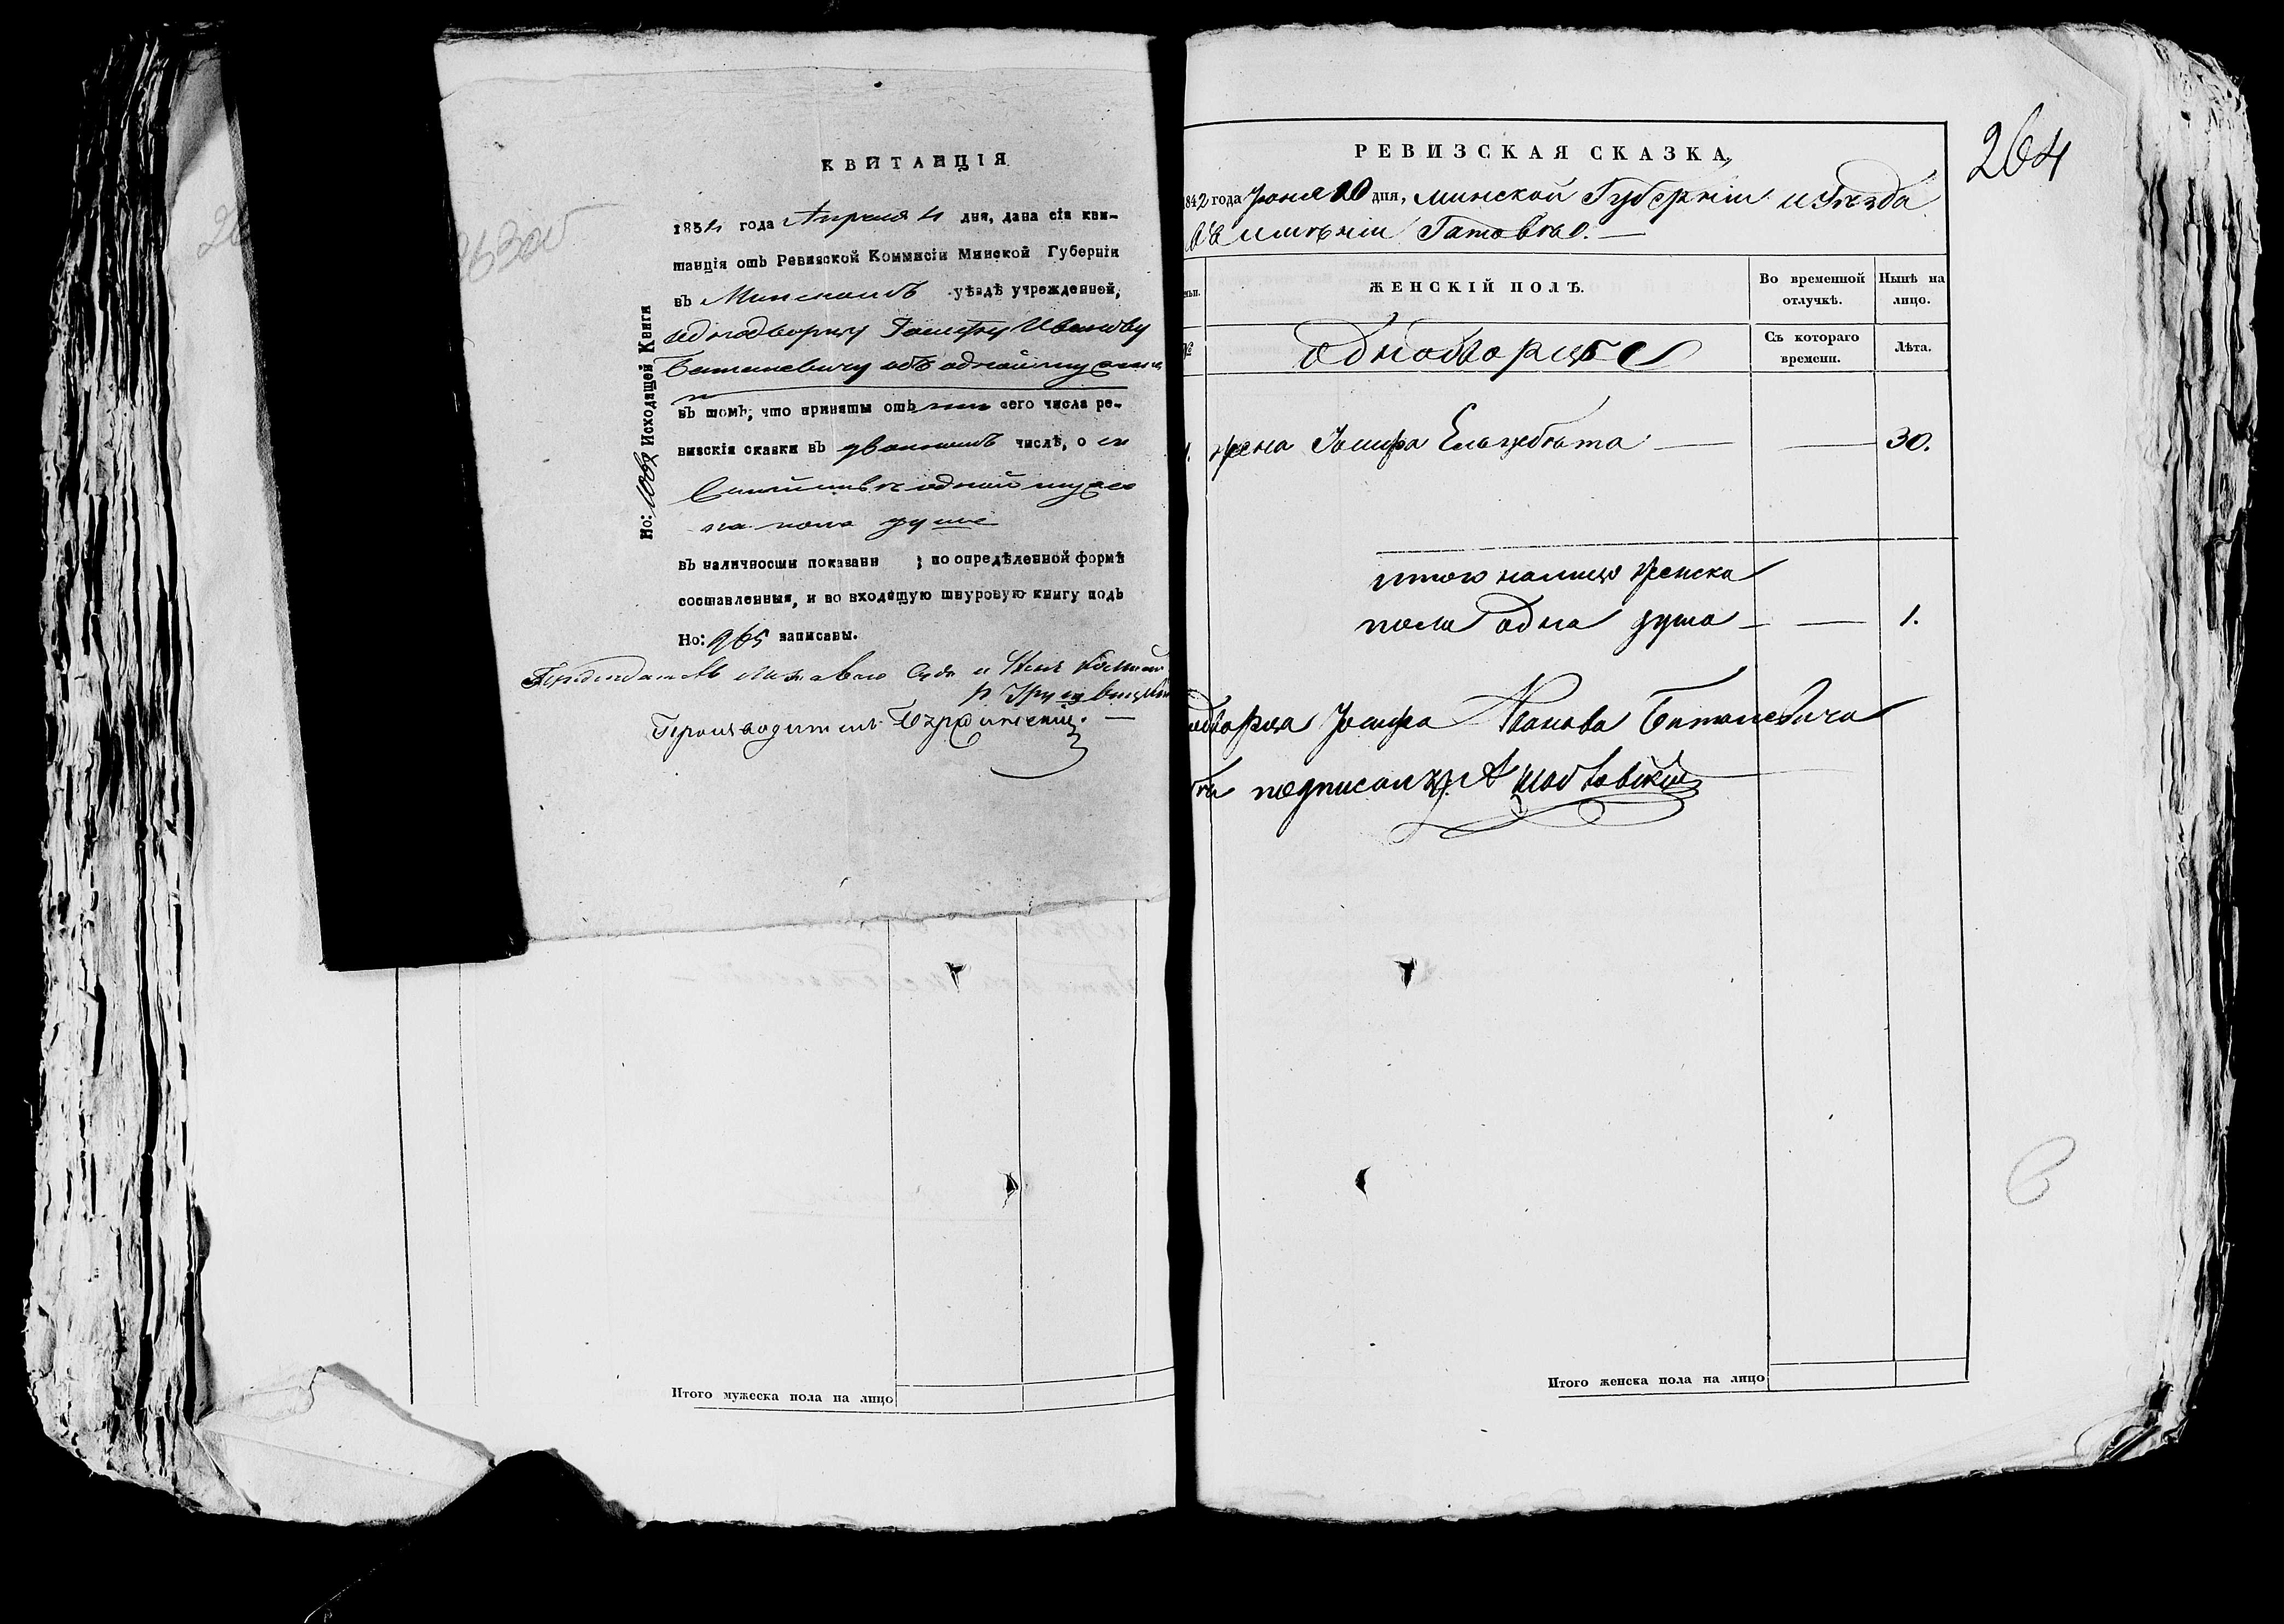 КВИТАНЦІЯ
1854 года Апреля 4 дня, дана сія кви-
танція отъ Ревизской Коммисіи Минской Губерніи
въ Минскомъ уѣздѣ учрежденной,
однодворцу Іосифу Иванову
Битаневичу объ одной мужеск
въ томъ, что приняты отъ него сего числа ре-
визскія сказки въ двойномъ числѣ, о
одной мужес
ка пола душе
въ наличности показани ; по опредѣленной формѣ
составленныя, и во входящую шнуровую книгу подъ
Но: 965 записаны.
Производитель
Но: Исходящей Книги
Итого мужеска пола на лицо
264
РЕВИЗСКАЯ СКАЗКА,
1842 года Іюня 10 дня, Минской Губерніи и Уѣзда
въ имѣніи Гатовка.
ЖЕНСКІЙ ПОЛЪ.
Во временной отлучкѣ.
Нынѣ на лицо.
№
однодворцы
Съ котораго времени.
Лѣта.
1. жена Іосифа Ельжбѣта 30.
итого налицо женска
пола одна душа 1.
одворца Іосифа Иванова Битаневича
подписалъ
Итого женска пола на лицо